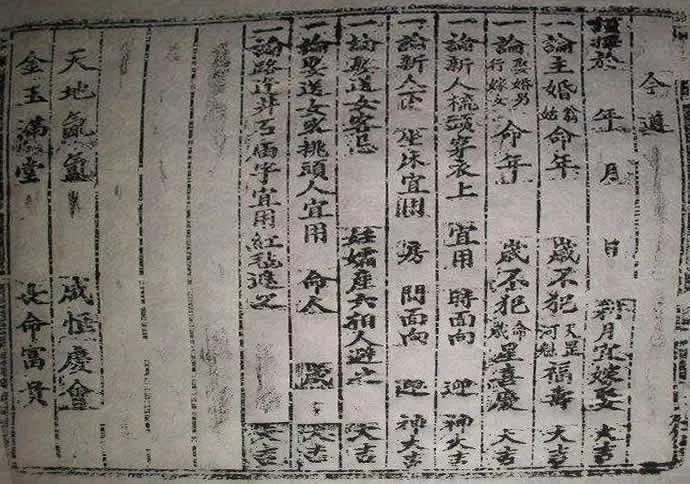 今遵
謹擇於 年 月 日 利月宜嫁娶 大吉
一論主婚翁姑命年 歲不犯天罡河魁福壽 大吉
一論娶婚男行嫁女命年 歲不犯命歲星喜慶 大吉
一論新人梳頭穿衣上 宜用 時面向 迎 神大吉
一論新人 座床宜 房 間面向 迎 神大吉
一論娶送女客忌 妊 產 相人避之 大吉
一論娶送女 挑頭人宜用 命人 大吉
一論路逢井石廟宇宜用紅毡遮之 大吉
天地氤氳 咸恒慶會
金玉滿堂 長命富貴